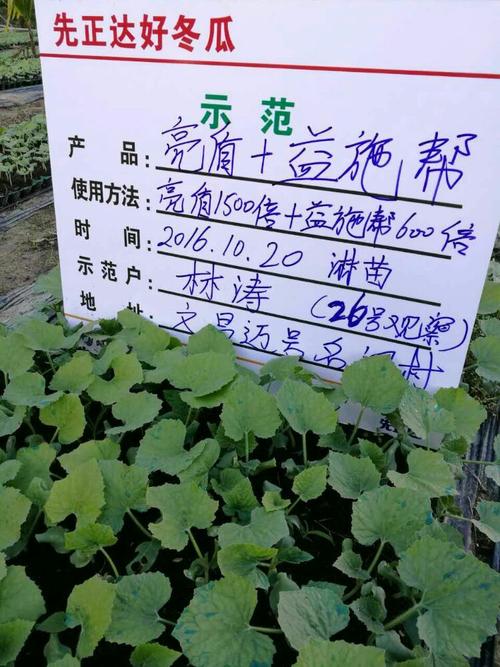 先正达好冬瓜
示范
产品:亮盾+益施帮
使用方法:亮盾1500倍+益施帮600倍
时间:2016.10.20 淋苗
示范户:林涛(26号观察)
地址:文昌迈号